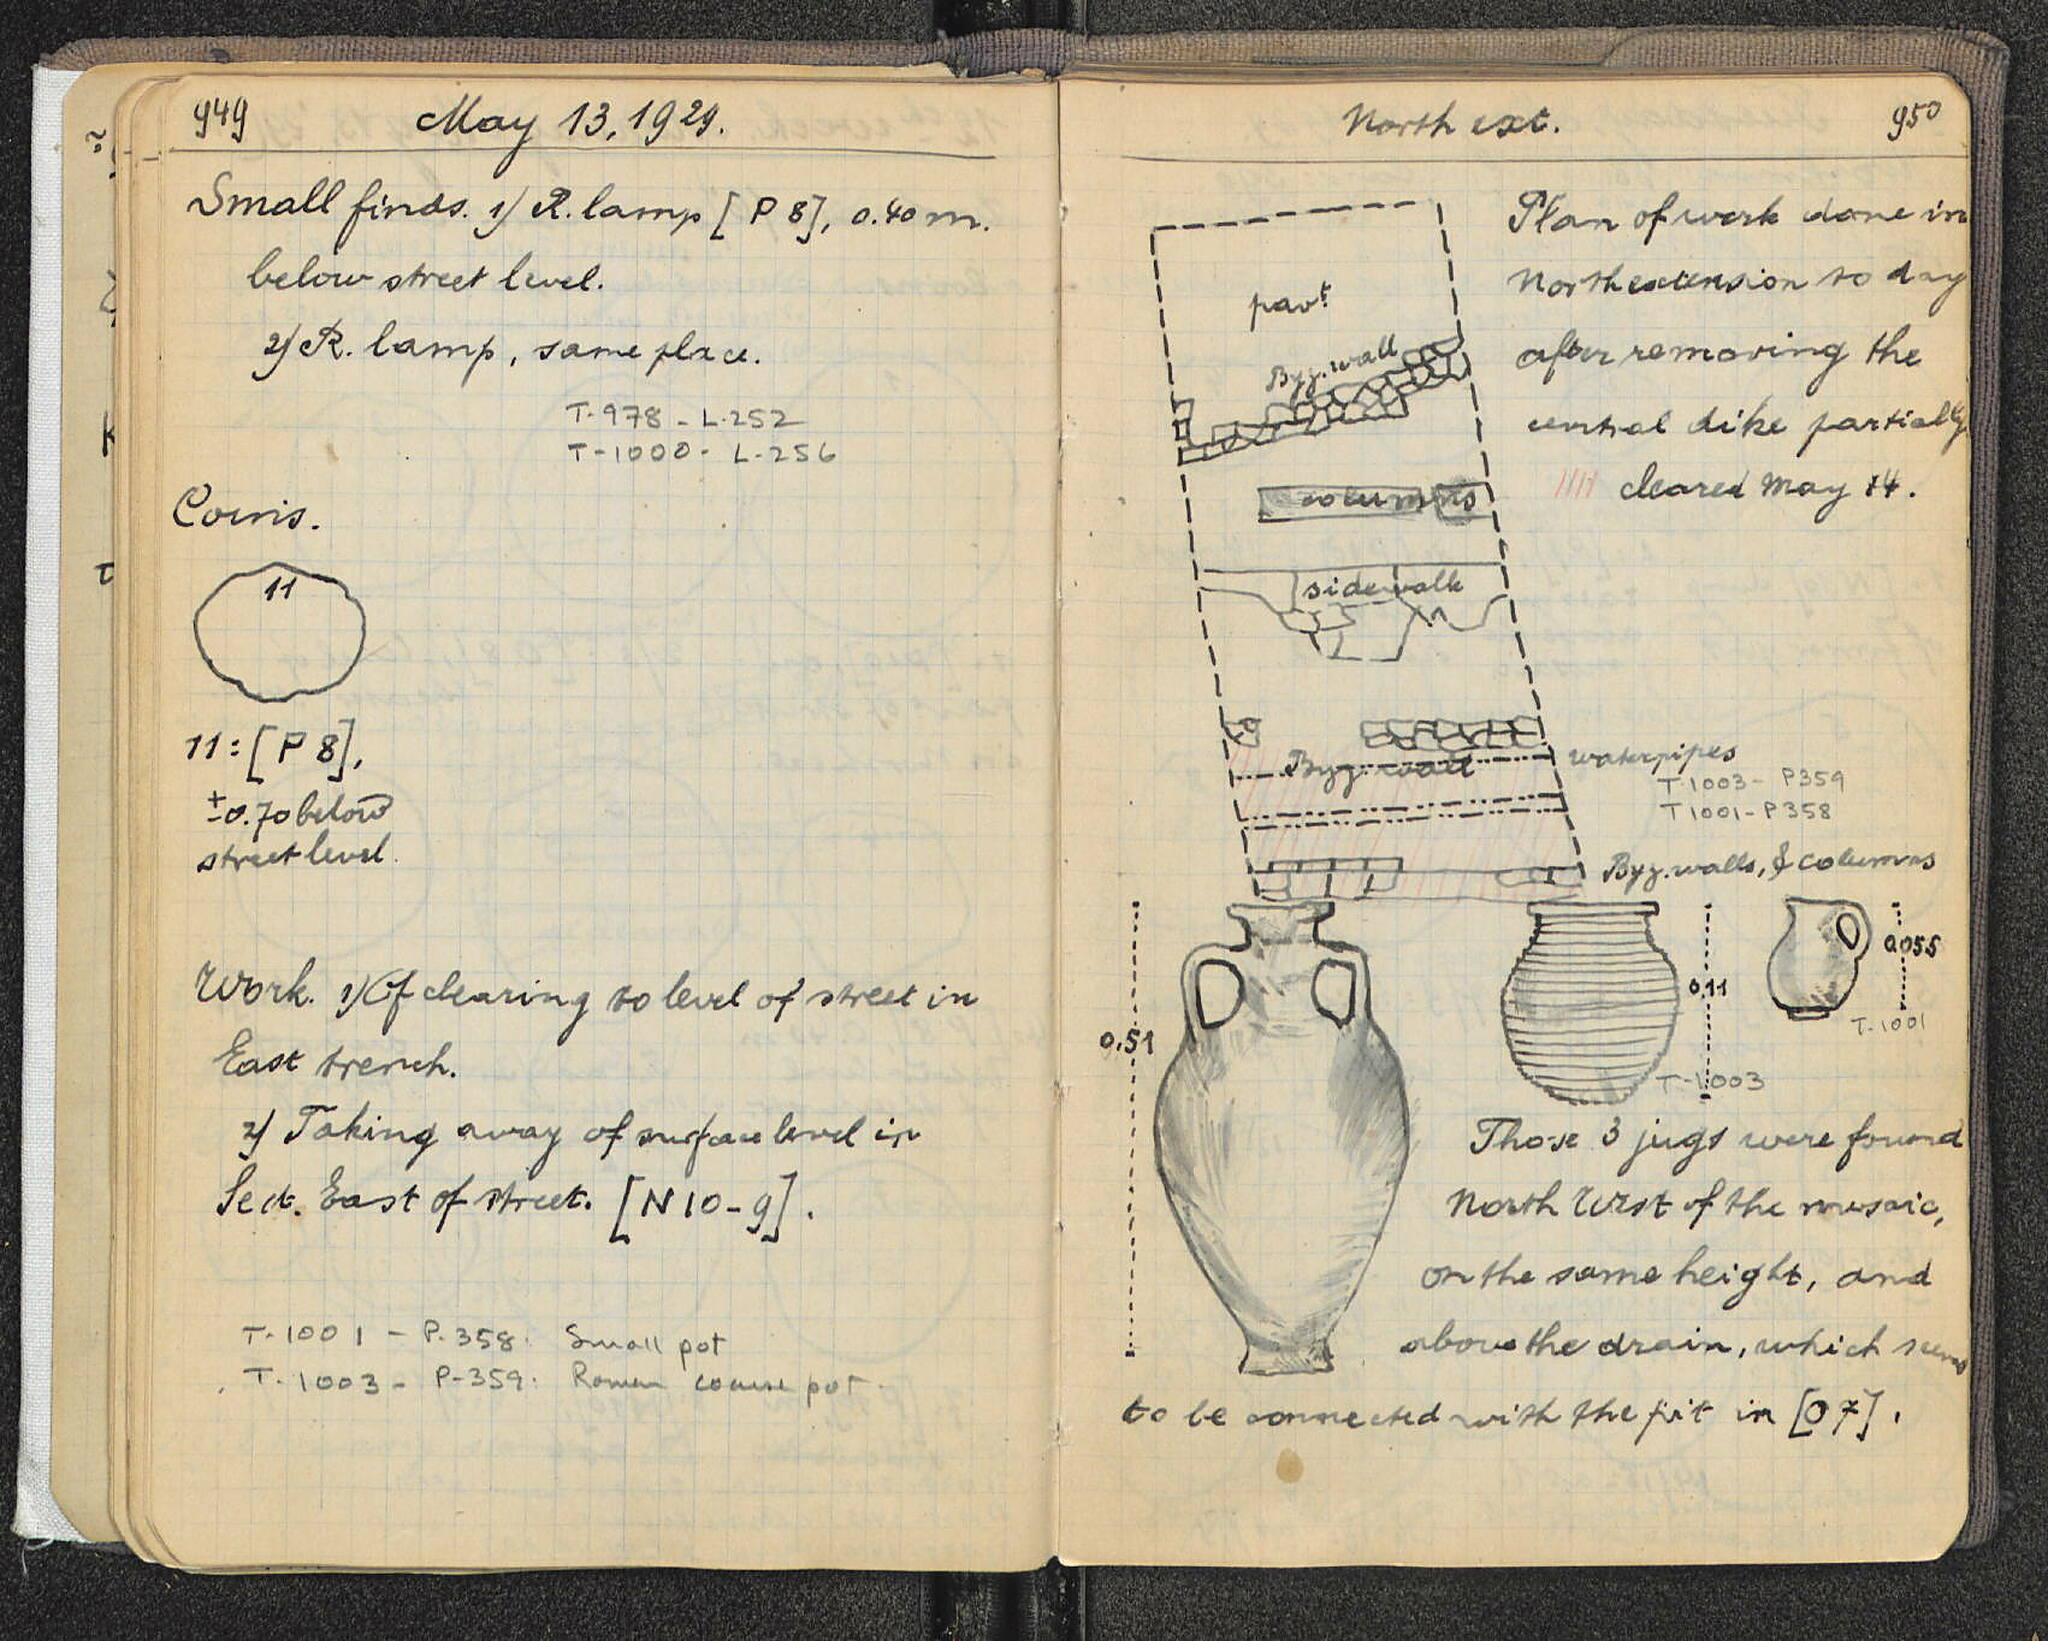 949
May 13, 1929.
Small finds. 1) R. lamp [P 8], 0.40 m.
below street level.
2) R. lamp, same place.
T-978 - L-252
T-1000 - L-256
Coins.
11
11: [P 8],
±0.70 below
street level.
Work. 1) Of clearing to level of street in
East trench.
2) Taking away of surface level in
Sect. East of street. [N 10-9].
T-1001 - P-358: Small pot
T-1003 - P-359: Roman coarse pot.
North ext.
950
Plan of work done in
North extension to day
after removing the
central dike partially
//// cleared May 14.
pavt.
Byz. wall
columns
sidewalk
Byz. wall
waterpipes
T-1003 - P359
T1001 - P358
Byz. walls, & columns
0.51
0.11
T-1003
0.055
T-1001
Those 3 jugs were found
North West of the mosaic,
on the same height, and
above the drain, which seems
to be connected with the pit in [O 7].